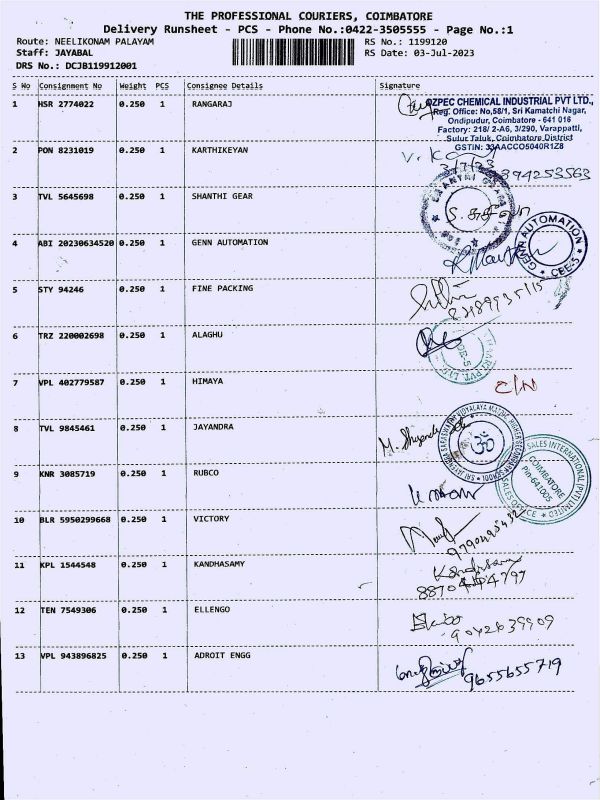 THE PROFESSIONAL COURIERS, COIMBATORE
Delivery Runsheet - PCS - Phone No.:0422-3505555 - Page No.:1
Route: NEELIKONAM PALAYAM RS No.: 1199120
Staff: JAYABAL RS Date: 03-Jul-2023
DRS No.: DCJB119912001
S No Consignment No Weight PCS Consignee Details Signature
1 HSR 2774022 0.250 1 RANGARAJ
OZPEC CHEMICAL INDUSTRIAL PVT LTD.,
Reg. Office: No,58/1, Sri Kamatchi Nagar,
Ondipudur, Coimbatore - 641 016
Factory: 218/ 2-A6, 3/290, Varappatti,
Sulur Taluk, Coimbatore District
GSTIN: 33AACCO5040R1Z8
2 PON 8231019 0.250 1 KARTHIKEYAN
3/7/23
9394253563
3 TVL 5645698 0.250 1 SHANTHI GEAR
4 ABI 20230634520 0.250 1 GENN AUTOMATION
GENN AUTOMATION
CBE-5
5 STY 94246 0.250 1 FINE PACKING
6 TRZ 220002698 0.250 1 ALAGHU
7 VPL 402779587 0.250 1 HIMAYA
C/N
8 TVL 9845461 0.250 1 JAYANDRA
ॐ
9 KNR 3085719 0.250 1 RUBCO
SALES INTERNATIONAL (PVT) LIMITED
COIMBATORE
Pin-641005
SALES OFFICE
10 BLR 5950299668 0.250 1 VICTORY
9790495432
11 KPL 1544548 0.250 1 KANDHASAMY
12 TEN 7549306 0.250 1 ELLENGO
9042639909
13 VPL 943896825 0.250 1 ADROIT ENGG
9655655719